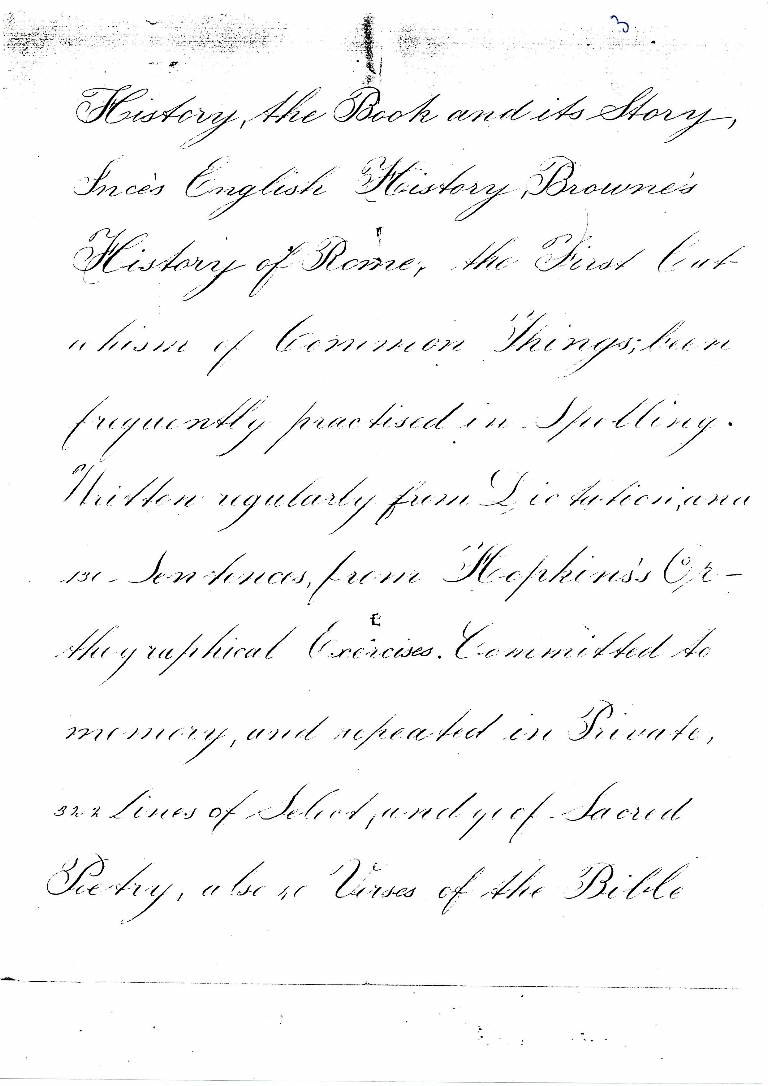 3
History, the Book and its Story,
Ince's English History, Browne's
History of Rome, the First Cat-
echism of Common Things; been
frequently practised in Spelling.
Written regularly from Dictation, and
Sentences, from Hopkins's Or-
thographical Exercises. Committed to
memory, and repeated in Private,
322 Lines of Select, and of Sacred
Poetry, also Verses of the Bible